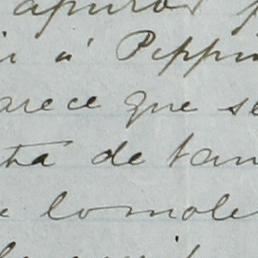 apuros
á Pippin
arece que se
ta de tan
lo mole